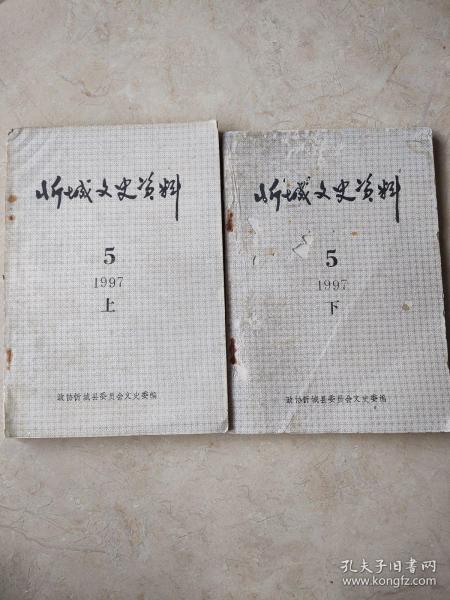 忻城文史资料
5
1997
上
政协忻城县委员会文史委编
忻城文史资料
5
1997
下
政协忻城县委员会文史委编
孔夫子旧书网
www.kongfz.com